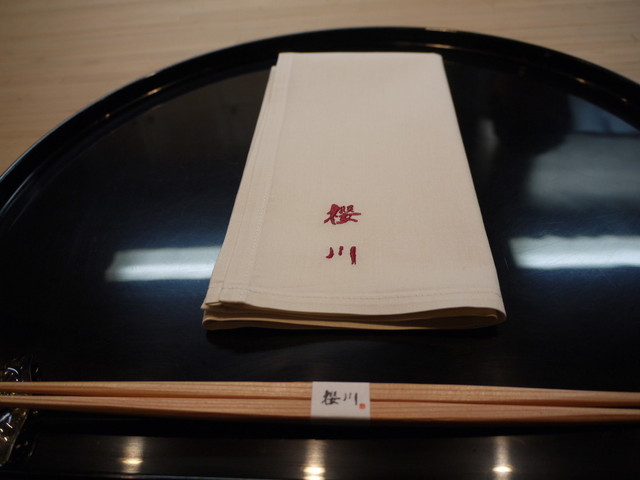 櫻
川
櫻川